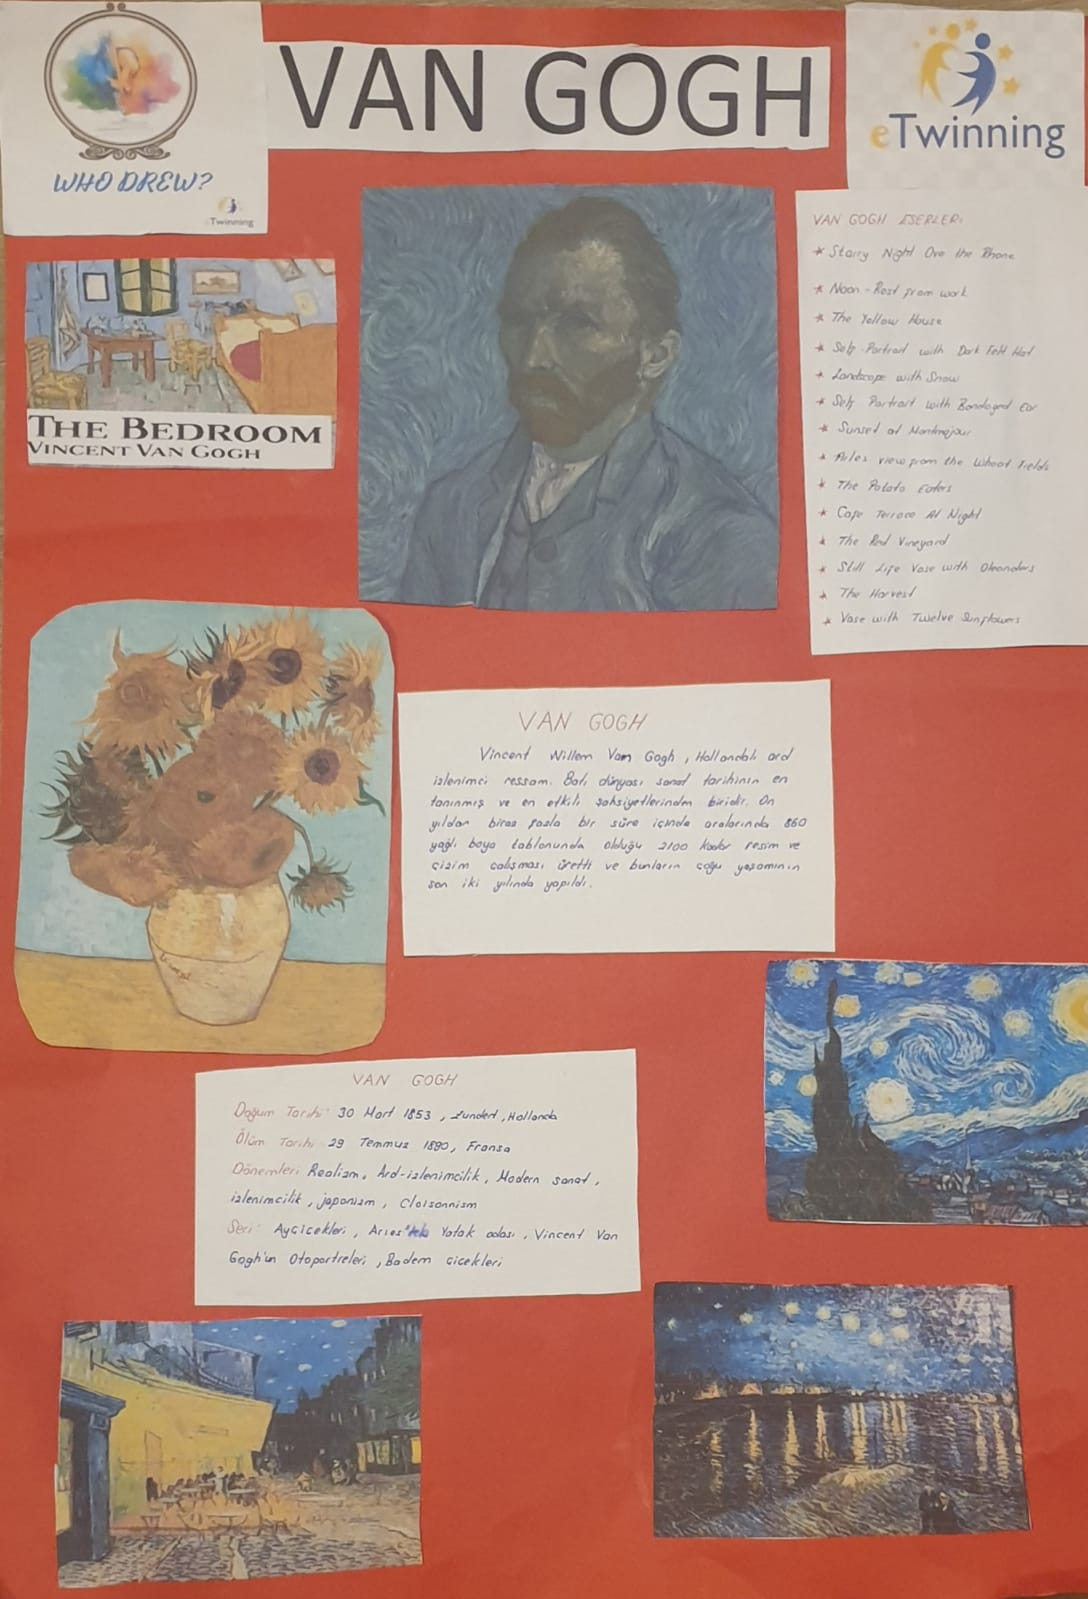 VAN GOGH
WHO DREW?
eTwinning
eTwinning
VAN GOGH ESERLERİ
* Starry Night Ove the Rhone
* Noon - Rest from work
* The Yellow House
* Self-Portrait with Dark Felt Hat
* Landscape with Snow
* Self Portrait with Bandaged Ear
* Sunset at Montmajour
* Arles view from the Wheat Fields
* The Potato Eaters
* Cafe Terrace At Night
* The Red Vineyard
* Still Life Vase with Oleanders
* The Harvest
* Vase with Twelve Sunflowers
THE BEDROOM
VINCENT VAN GOGH
VAN GOGH
Vincent Willem Van Gogh, Hollandalı ard
izlenimci ressam. Batı dünyası sanat tarihinin en
tanınmış ve en etkili şahsiyetlerinden biridir. On
yıldan biraz fazla bir süre içinde aralarında 860
yağlı boya tablonunda olduğu 2100 kadar resim ve
çizim çalışması üretti ve bunların çoğu yaşamının
son iki yılında yapıldı.
Vincent
VAN GOGH
Doğum Tarihi: 30 Mart 1853, Zundert, Hollanda
Ölüm Tarihi: 29 Temmuz 1890, Fransa
Dönemleri: Realizm, Ard-izlenimcilik, Modern sanat,
izlenimcilik, japonizm, Cloisonnism
Seri: Ayçiçekleri, Arles'teki Yatak odası, Vincent Van
Gogh'un Otoportreleri, Badem çiçekleri